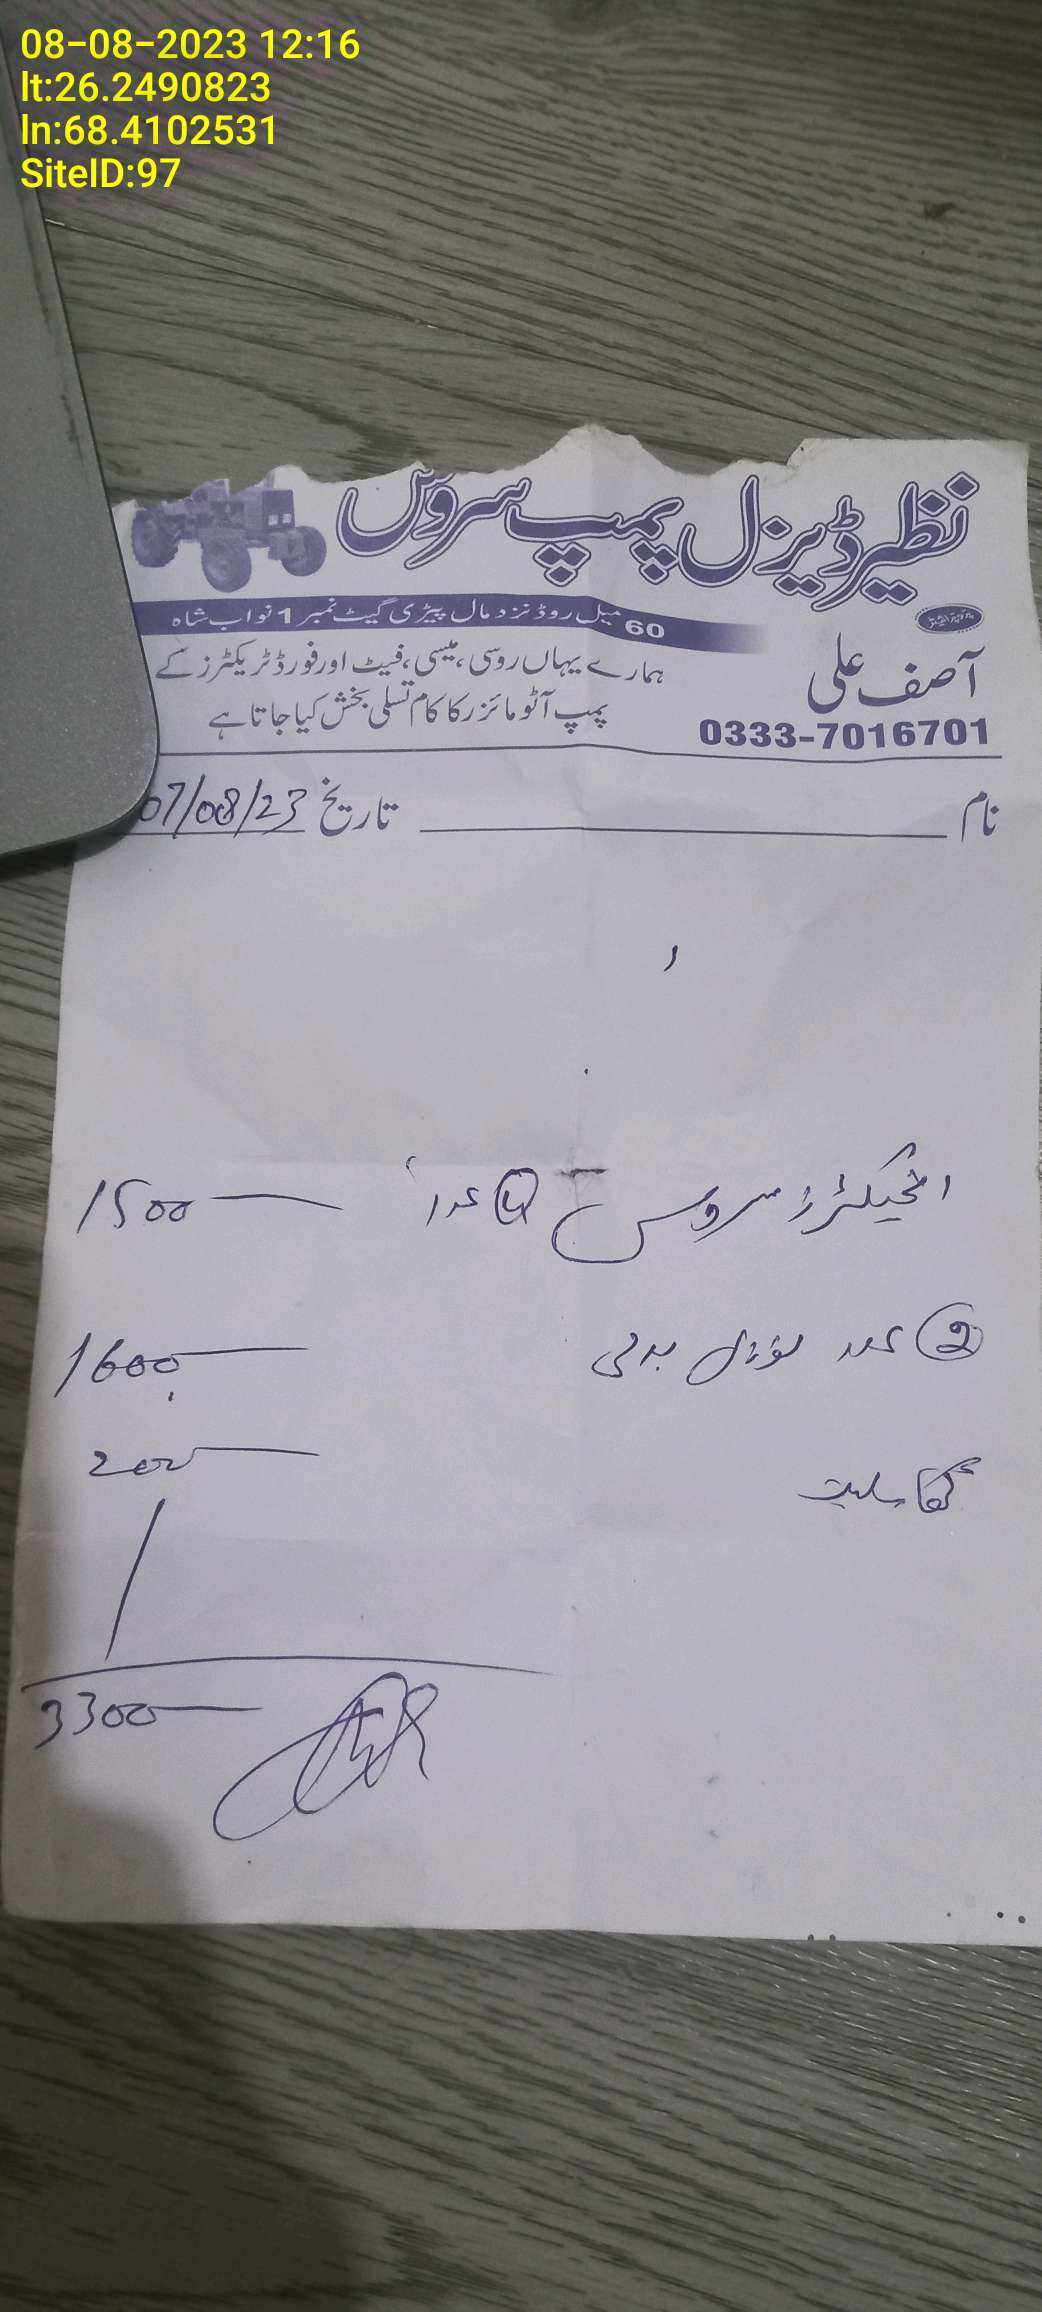 08-08-2023 12:16
lt:26.2490823
ln:68.4102531
SiteID:97
نظیر ڈیزل پمپ سروس
60 میل روڈ نزد مال پیڑی گیٹ نمبر 1 نواب شاہ
آصف علی
ہمارے یہاں روسی، میسی، فیٹ اور فورڈ ٹریکٹرز کے
پمپ آٹومائزر کا کام تسلی بخش کیا جاتا ہے
0333-7016701
نام تاریخ 07/08/23
انجیکٹرز سروس 4 عدد 1500
2 عدد نوزل بدلی 1600
200
3300